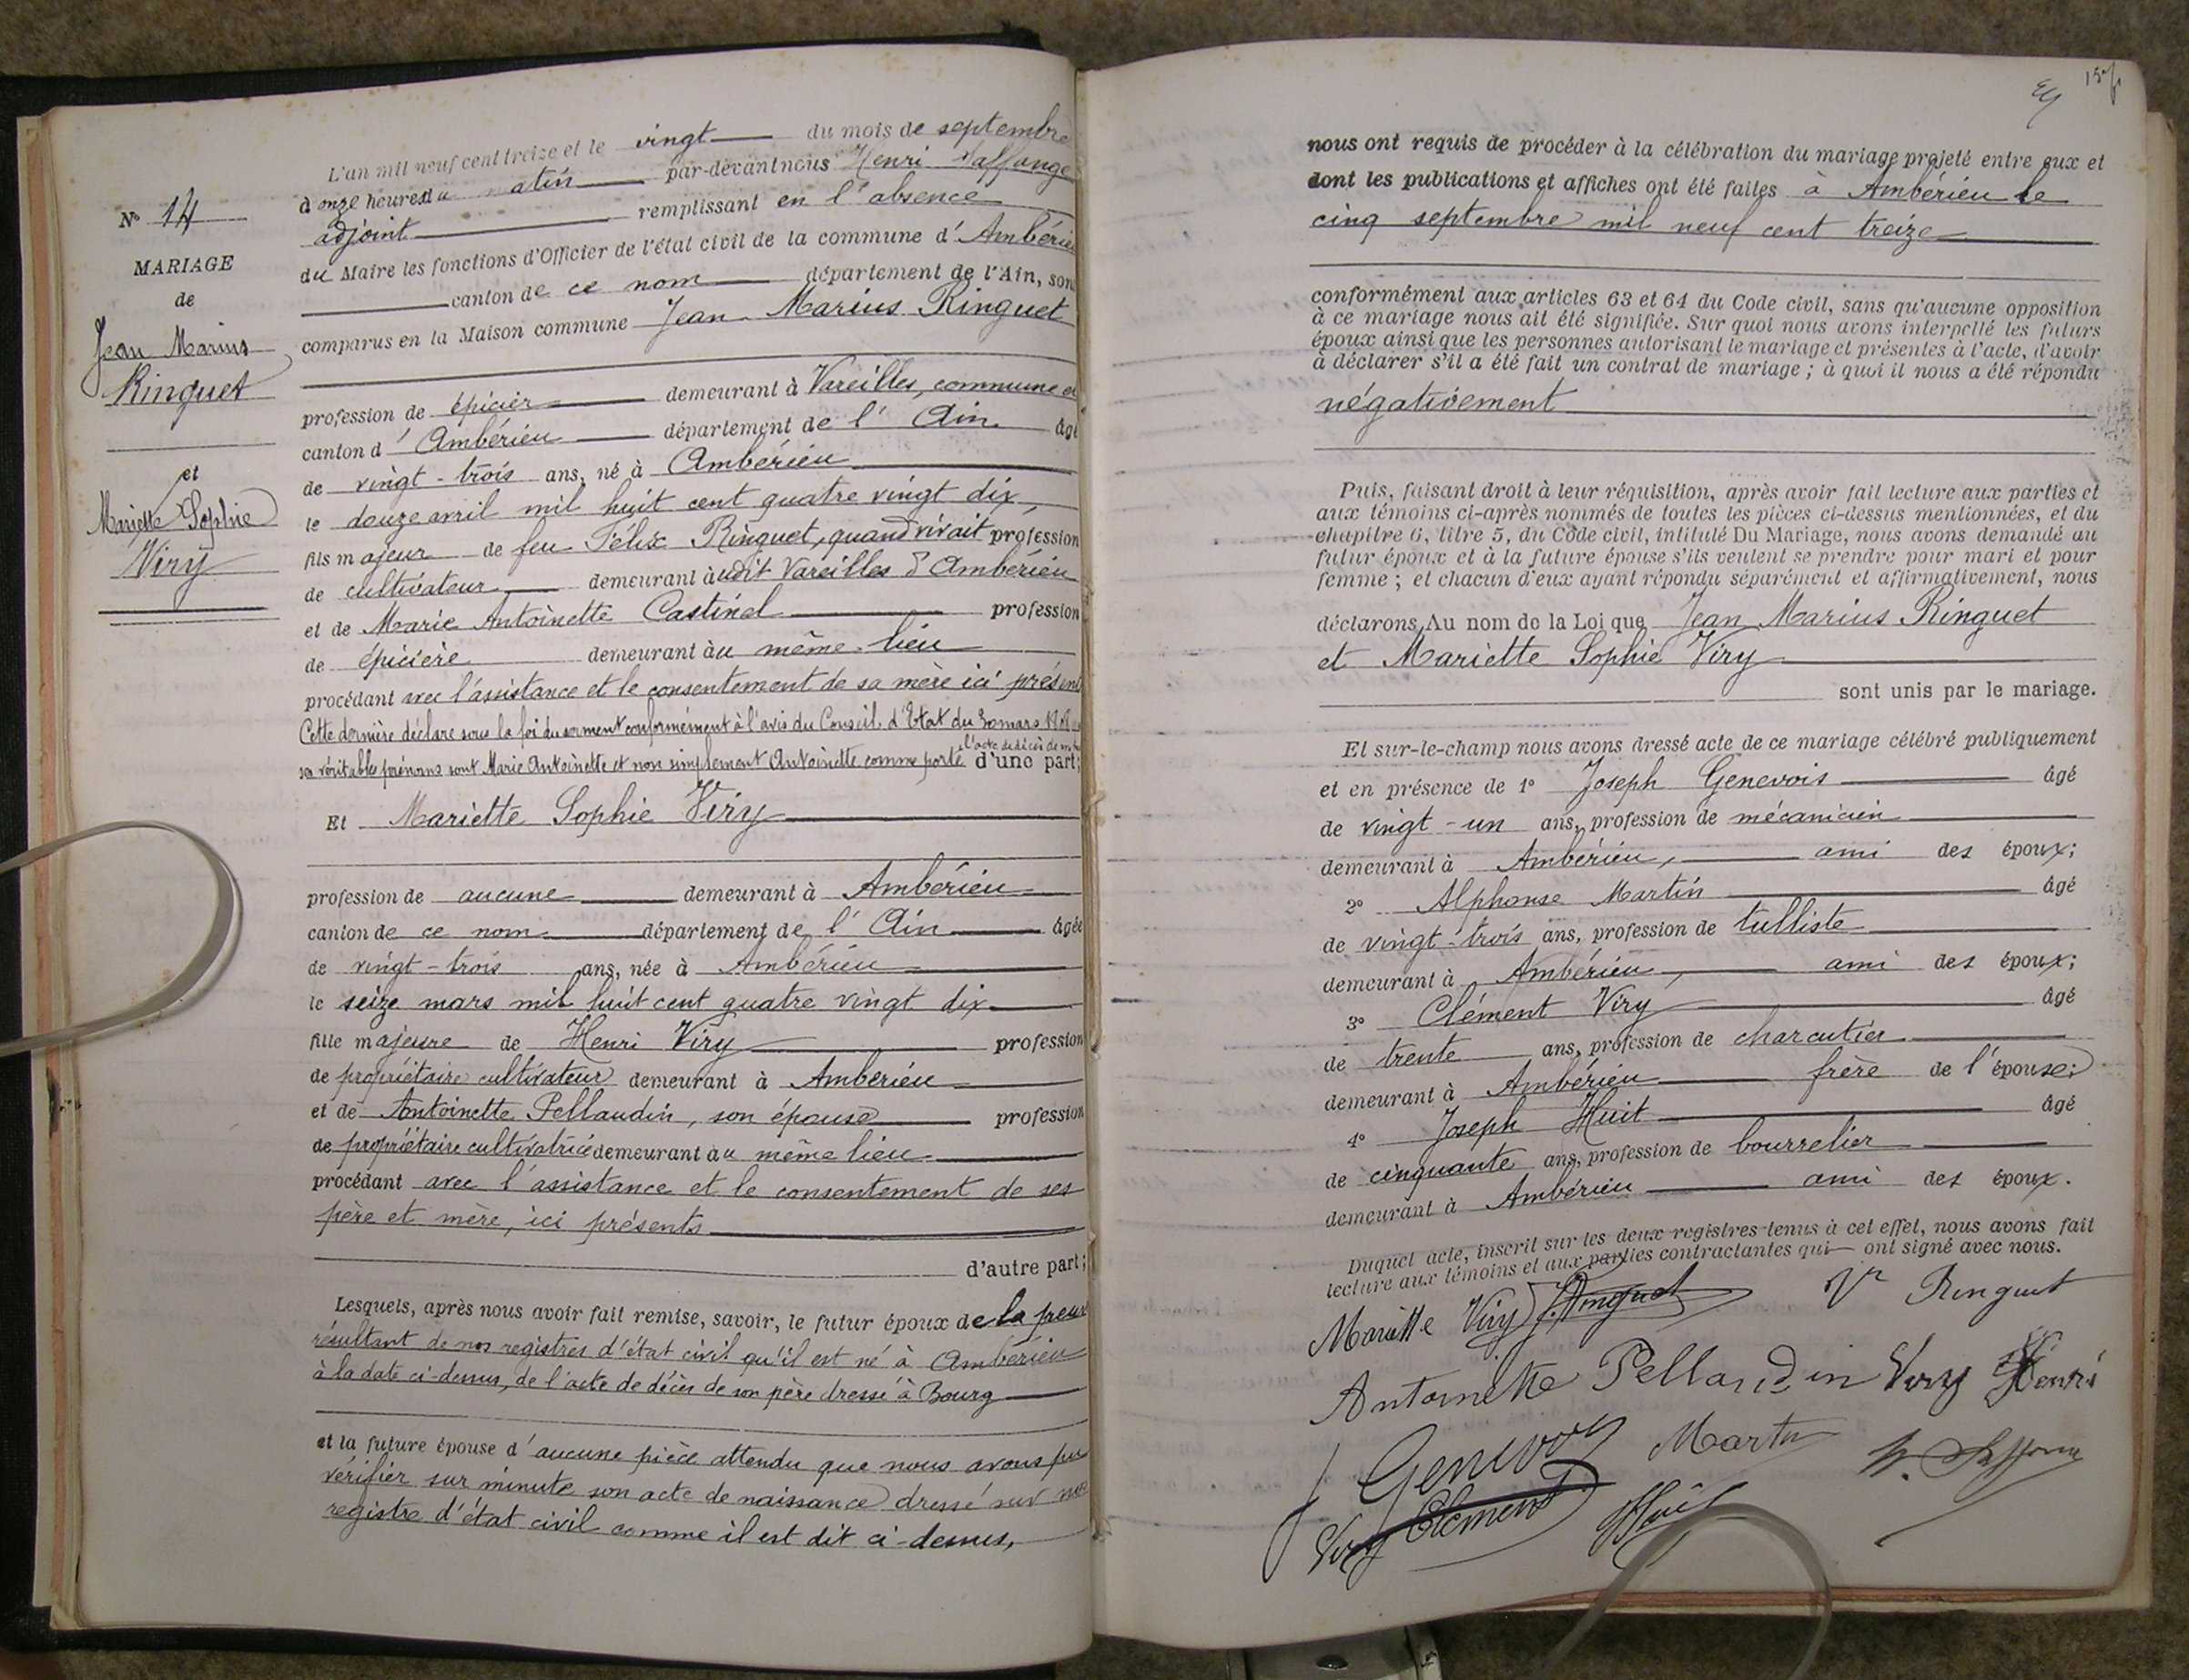 N° 14
MARIAGE
de
Jean Marius
Ringuet
et
Mariette Sophie
Viry
L'an mil neuf cent treize et le vingt du mois de septembre
à onze heures du matin par-devant nous Henri
adjoint remplissant en l'absence
du Maire les fonctions d'Officier de l'état civil de la commune d'Ambérieu
canton de ce nom département de l'Ain, sont
comparus en la Maison commune Jean Marius Ringuet
profession de épicier demeurant à Vareilles, commune et
canton d'Ambérieu département de l'Ain âgé
de vingt-trois ans, né à Ambérieu
le douze avril mil huit cent quatre vingt dix
fils majeur de feu Félix Ringuet, quand vivait profession
de cultivateur demeurant àudit Vareilles d'Ambérieu
et de Marie Antoinette Castinel profession
de épicière demeurant àu même lieu
procédant avec l'assistance et le consentement de sa mère ici présente
Cette dernière déclare sous la foi du serment conformément à l'avis du Conseil d'Etat du 30 mars
ses véritables prénoms sont Marie Antoinette et non simplement Antoinette comme porte l'acte de décès de d'une part;
Et Mariette Sophie Viry
profession de aucune demeurant à Ambérieu
canton de ce nom département de l'Ain âgée
de vingt-trois ans, née à Ambérieu
le seize mars mil huit cent quatre vingt dix
fille majeure de Henri Viry profession
de propriétaire cultivateur demeurant à Ambérieu
et de Antoinette Pellaudin, son épouse profession
de propriétaire cultivatrice demeurant àu même lieu
procédant avec l'assistance et le consentement de ses
père et mère, ici présents
d'autre part;
Lesquels, après nous avoir fait remise, savoir, le futur époux de la preuve
résultant de nos registres d'état civil qu'il est né à Ambérieu
à la date ci-dessus, de l'acte de décès de son père dressé à Bourg
et la future épouse d'aucune pièce attendu que nous avons pu
vérifier sur minute son acte de naissance dressé sur nos
registre d'état civil comme il est dit ci-dessus,
nous ont requis de procéder à la célébration du mariage projeté entre eux et
dont les publications et affiches ont été faites à Ambérieu le
cinq septembre mil neuf cent treize
conformément aux articles 63 et 64 du Code civil, sans qu'aucune opposition
à ce mariage nous ait été signifiée. Sur quoi nous avons interpellé les futurs
époux ainsi que les personnes autorisant le mariage et présentes à l'acte, d'avoir
à déclarer s'il a été fait un contrat de mariage; à quoi il nous a été répondu
négativement
Puis, faisant droit à leur réquisition, après avoir fait lecture aux parties et
aux témoins ci-après nommés de toutes les pièces ci-dessus mentionnées, et du
chapitre 6, titre 5, du Code civil, intitulé Du Mariage, nous avons demandé au
futur époux et à la future épouse s'ils veulent se prendre pour mari et pour
femme; et chacun d'eux ayant répondu séparément et affirmativement, nous
déclarons, Au nom de la Loi que Jean Marius Ringuet
et Mariette Sophie Viry
sont unis par le mariage.
Et sur-le-champ nous avons dressé acte de ce mariage célébré publiquement
et en présence de 1° Joseph Genevois âgé
de vingt-un ans, profession de mécanicien
demeurant à Ambérieu, ami des époux;
2° Alphonse Martin âgé
de vingt-trois ans, profession de tulliste
demeurant à Ambérieu, ami des époux;
3° Clément Viry âgé
de trente ans, profession de charcutier
demeurant à Ambérieu frère de l'épouse;
4° Joseph Huit âgé
de cinquante ans, profession de bourrelier
demeurant à Ambérieu ami des époux.
Duquel acte, inscrit sur les deux registres tenus à cet effet, nous avons fait
lecture aux témoins et aux parties contractantes qui ont signé avec nous.
Mariette Viry J. Ringuet Ve Ringuet
Antoinette Pellaudin Viry Henri
J Genevois Martin
Viry Clément Huit